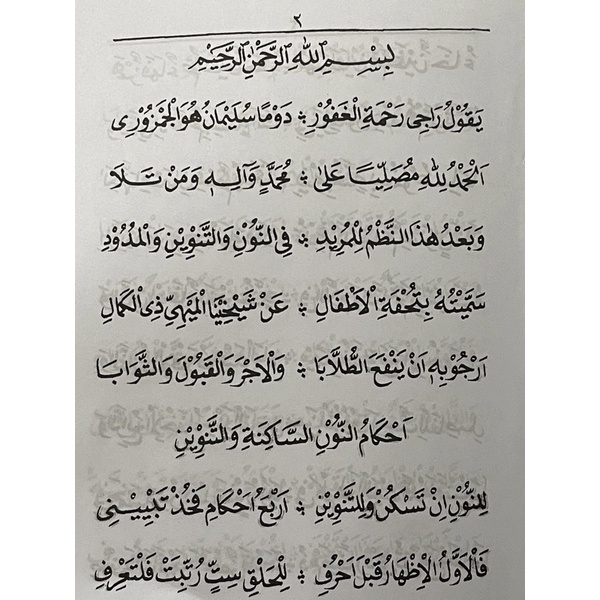 ٢
بِسْمِ اللهِ الرَّحْمٰنِ الرَّحِيْمِ
يَقُوْلُ رَاجِىْ رَحْمَةِ الْغَفُوْرِ ؞ دَوْمًا سُلَيْمَانُ هُوَ الْجَمْزُوْرِى
اَلْحَمْدُ لِلّٰهِ مُصَلِّيًا عَلٰى ؞ مُحَمَّدٍ وَّاٰلِهٖ وَمَنْ تَلَا
وَبَعْدُ هٰذَا النَّظْمُ لِلْمُرِيْدِ ؞ فِى النُّوْنِ وَالتَّنْوِيْنِ وَالْمُدُوْدِ
سَمَّيْتُهُ بِتُحْفَةِ الْاَطْفَالِ ؞ عَنْ شَيْخِنَا الْمِيْهِىِّ ذِى الْكَمَالِ
اَرْجُوْ بِهٖ اَنْ يَنْفَعَ الطُّلَّابَا ؞ وَالْاَجْرَ وَالْقَبُوْلَ وَالثَّوَابَا
اَحْكَامُ النُّوْنِ السَّاكِنَةِ وَالتَّنْوِيْنِ
لِلنُّوْنِ اِنْ تَسْكُنْ وَلِلتَّنْوِيْنِ ؞ اَرْبَعُ اَحْكَامٍ فَخُذْ تَبْيِيْنِىْ
فَالْاَوَّلُ الْاِظْهَارُ قَبْلَ اَحْرُفِ ؞ لِلْحَلْقِ سِتٍّ رُتِّبَتْ فَلْتَعْرِفِ